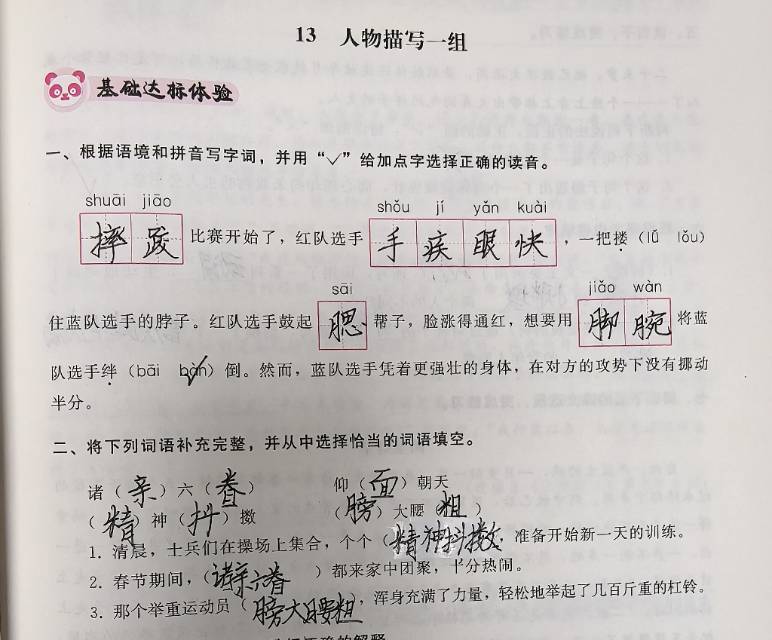 13 人物描写一组
基础达标体验
一、根据语境和拼音写字词，并用“√”给加点字选择正确的读音。
shuāi jiāo shǒu jí yǎn kuài
摔跤比赛开始了，红队选手手疾眼快，一把搂（lǚ lǒu）
sāi jiǎo wàn
住蓝队选手的脖子。红队选手鼓起腮帮子，脸涨得通红，想要用脚腕将蓝
队选手绊（bāi bàn√）倒。然而，蓝队选手凭着更强壮的身体，在对方的攻势下没有挪动
半分。
二、将下列词语补充完整，并从中选择恰当的词语填空。
诸（亲）六（眷） 仰（面）朝天
（精）神（抖）擞 （膀）大腰（粗）
1. 清晨，士兵们在操场上集合，个个（精神抖擞），准备开始新一天的训练。
2. 春节期间，（诸亲六眷）都来家中团聚，十分热闹。
3. 那个举重运动员（膀大腰粗），浑身充满了力量，轻松地举起了几百斤重的杠铃。